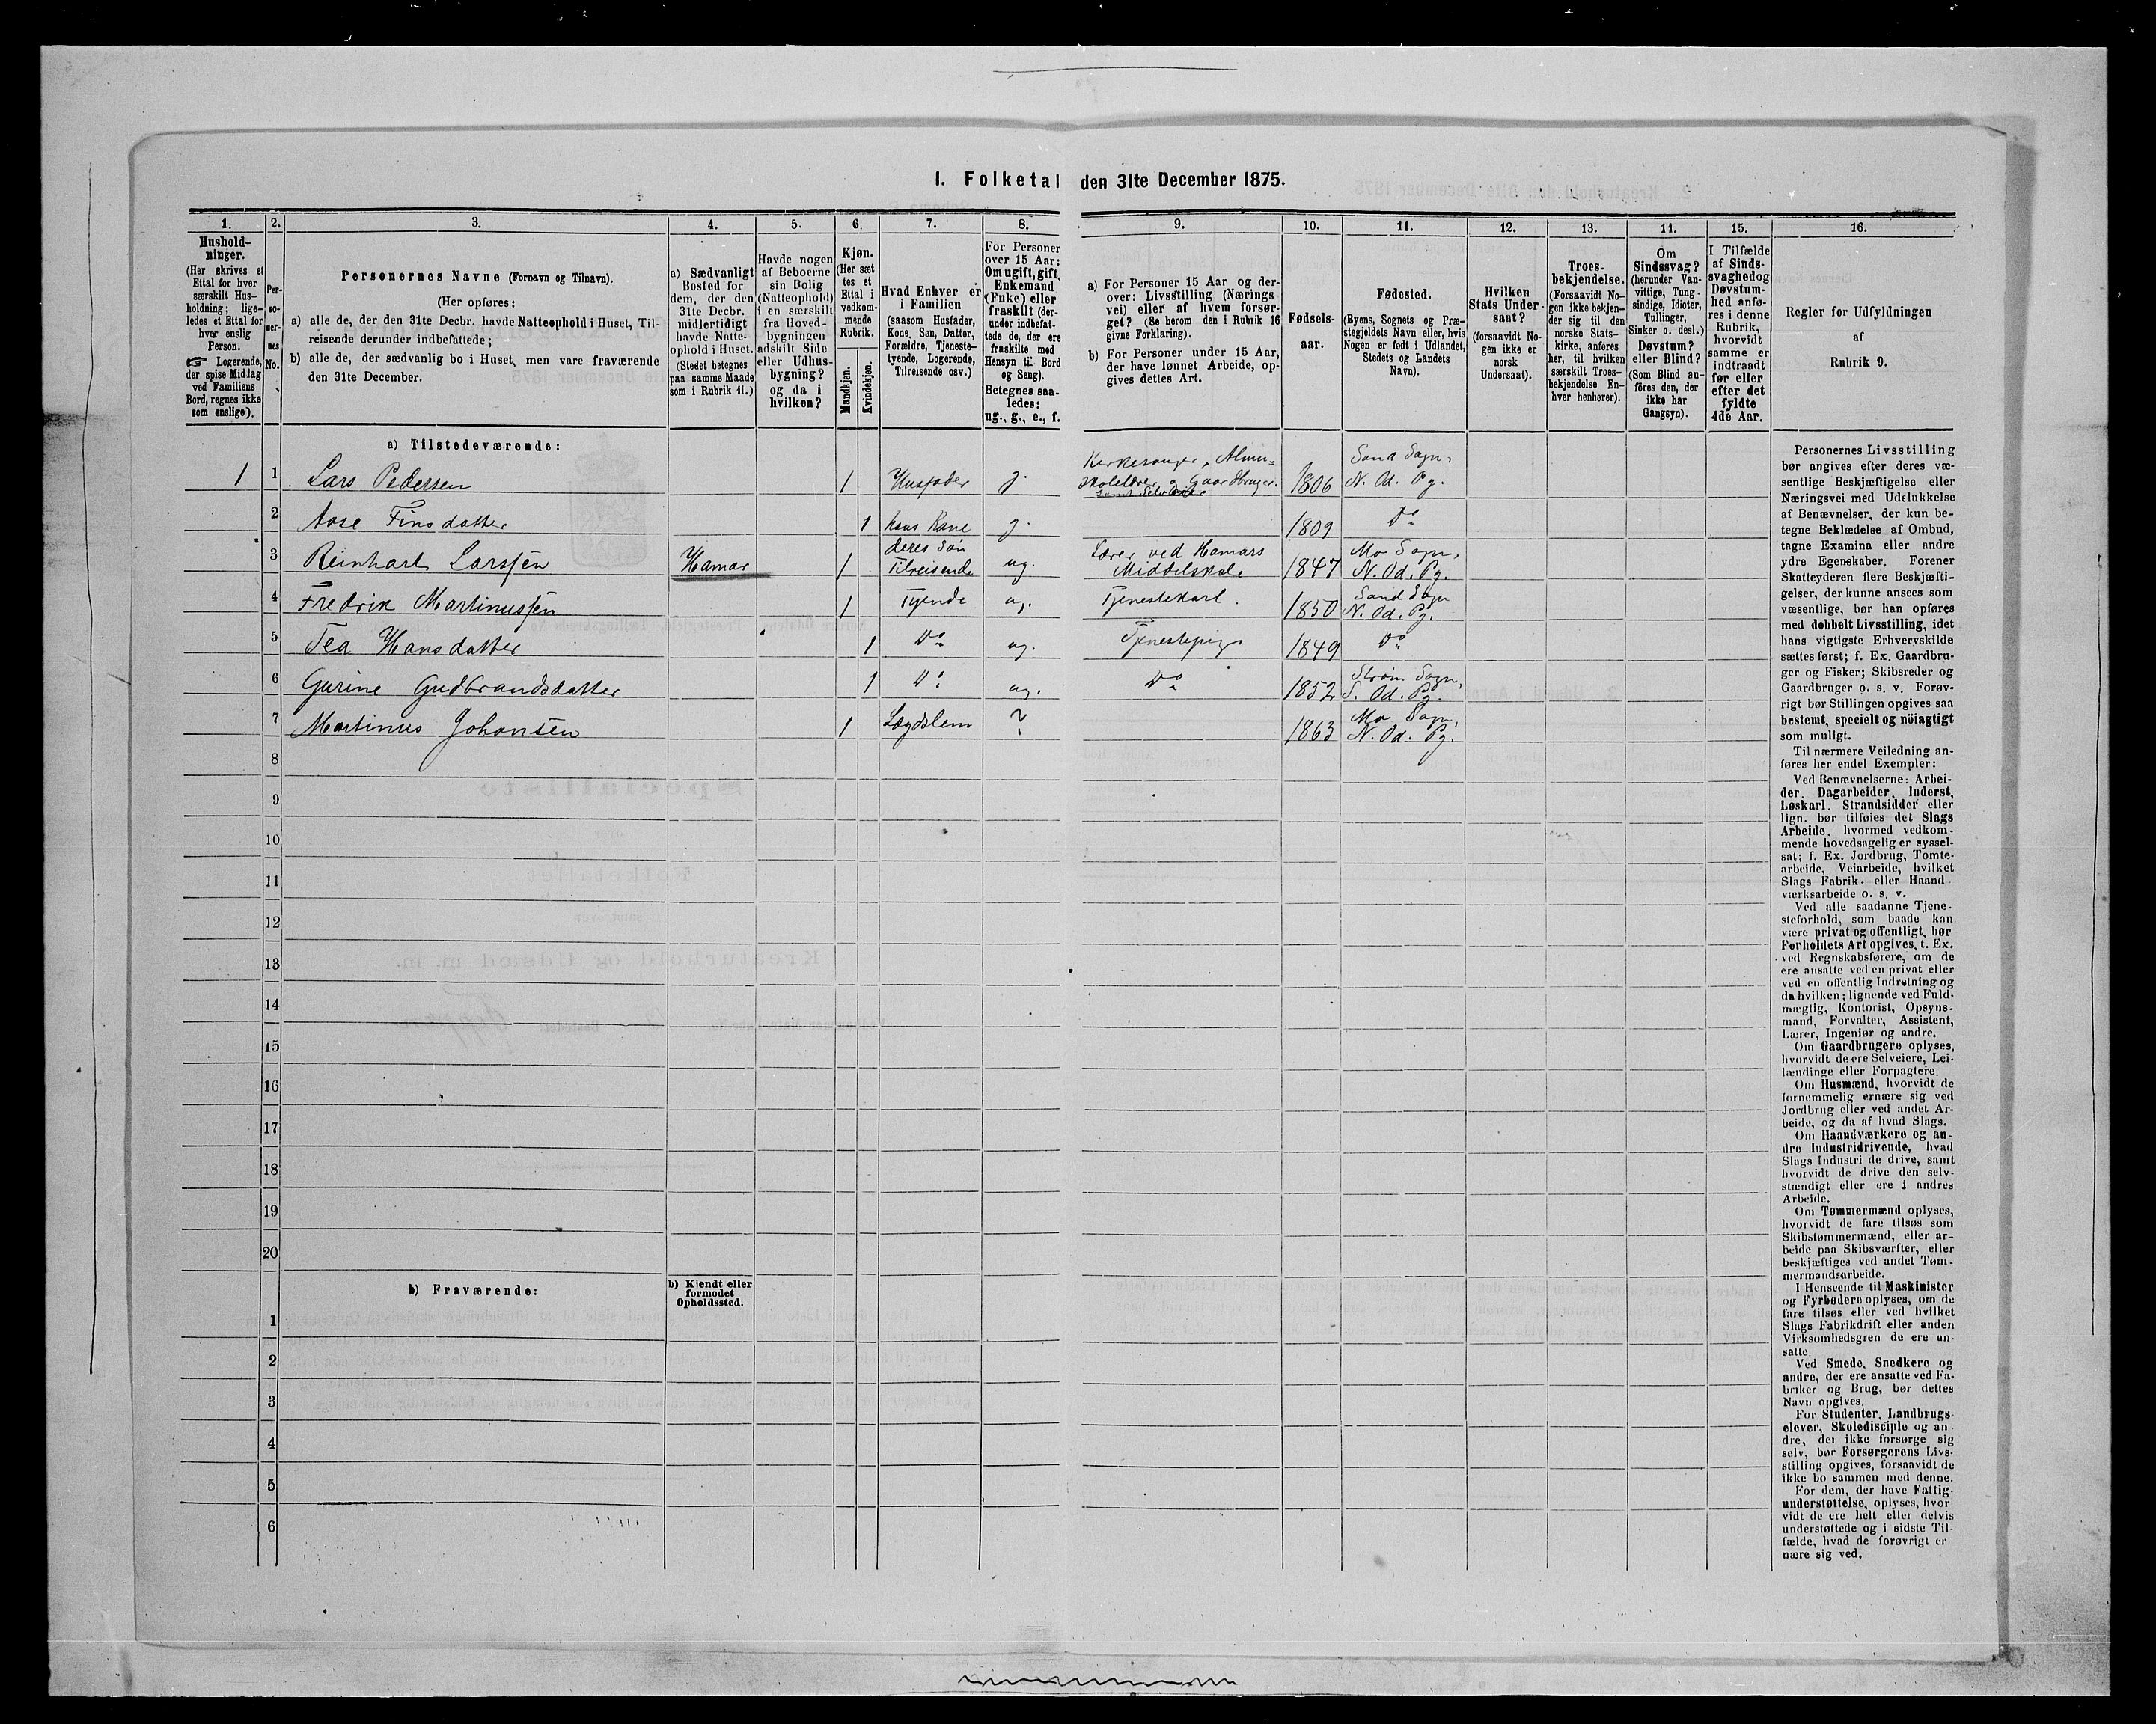 I. Folketal den 31te December 1875.
1. 2. 3. 4. 5. 6. 7. 8. 9. 10. 11. 12. 13. 14. 15. 16.
Hushold-
ninger.
(Her skrives et
Ettal for hver
særskilt Hus-
holdning; lige-
ledes et Ettal for
hver enslig
Person.
Logerende,
der spise Middag
ved Familiens
Bord, regnes ikke
som enslige).
Per-
so-
ner-
nes
No.
Personernes Navne (Fornavn og Tilnavn).
(Her opføres:
a) alle de, der den 31te Decbr. havde Natteophold i Huset, Til-
reisende derunder indbefattede;
b) alle de, der sædvanlig bo i Huset, men vare fraværende
den 31te December.
a) Sædvanligt
Bosted for
dem, der den
31te Decbr.
midlertidigt
havde Natte-
ophold i Huset.
(Stedet betegnes
paa samme Maade
som i Rubrik 11.)
Havde nogen
af Beboerne
sin Bolig
(Natteophold)
i en særskilt
fra Hoved-
bygningen
adskilt Side
eller Udhus-
bygning?
og da i
hvilken?
Kjøn.
(Her sæt
tes et
Ettal i
vedkom-
mende
Rubrik.
Mandkjøn.
Kvindekjøn.
Hvad Enhver er
i Familien
(saasom Husfader,
Kone, Søn, Datter,
Forældre, Tjeneste-
tyende, Logerende,
Tilreisende osv.)
For Personer
over 15 Aar:
Om ugift, gift,
Enkemand
(Enke) eller
fraskilt (der-
under indbefat-
tede de, der ere
fraskilte med
Hensyn til Bord
og Seng).
Betegnes saa-
ledes:
ug., g., e., f.
a) For Personer 15 Aar og der-
over: Livsstilling (Nærings
vei) eller af hvem forsør-
get? (Se herom den i Rubrik 16
givne Forklaring).
b) For Personer under 15 Aar,
der have lønnet Arbeide, op-
gives dettes Art.
Fødsels-
aar.
Fødested.
(Byens, Sognets og Præ-
stegjeldets Navn eller, hvis
Nogen er født i Udlandet,
Stedets og Landets
Navn).
Hvilken
Stats Under-
saat?
(forsaavidt No-
gen ikke er
norsk
Undersaat).
Troes-
bekjendelse.
(Forsaavidt No-
gen ikke bekjen-
der sig til den
norske Stats-
kirke, anføres
her, til hvilken
særskilt Troes-
bekjendelse En-
hver henhører).
Om
Sindssvag?
(herunder Van-
vittige, Tung-
sindige, Idioter,
Tullinger,
Sinker o. desl.)
Døvstum?
eller Blind?
(Som Blind an-
føres den, der
ikke har
Gangsyn).
I Tilfælde
af Sinds-
svaghed og
Døvstum-
hed anfø-
res i denne
Rubrik,
hvorvidt
samme er
indtraadt
før eller
efter det
fyldte
4de Aar.
Regler for Udfyldningen
af
Rubrik 9.
a) Tilstedeværende:
1 1 Lars Pedersen 1 Husfader g. Kirkesanger, Almu=
skolelærer og Gaardbruger.
samt Selveier 1806 Sand Sogn,
N. Od. Pg.
2 Aase Finsdatter 1 hans Kone g. 1809 Do
3 Reinhart Larssen Hamar 1 deres Søn
Tilreisende ug. Lærer ved Hamars
Middelskole 1847 Mo Sogn,
N. Od. Pg.
4 Fredrik Martinussen 1 Tyende ug. Tjenestekarl. 1850 Sand Sogn
N. Od. Pg.
5 Tea Hansdatter 1 Do ug. Tjenestepige 1849 Do
6 Gurine Gudbrandsdatter 1 Do ug. Do 1852 Strøm Sogn,
S. Od. Pg.
7 Martinus Johansen 1 Lægdslem ? 1863 Mo Sogn,
N. Od. Pg.
8
9
10
11
12
13
14
15
16
17
18
19
20
b) Fraværende:
b) Kjendt eller
formodet
Opholdssted.
1
2
3
4
5
6
Personernes Livsstilling
bør angives efter deres væ-
sentlige Beskjæftigelse eller
Næringsvei med Udelukkelse
af Benævnelser, der kun be-
tegne Beklædelse af Ombud,
tagne Examina eller andre
ydre Egenskaber. Forener
Skatteyderen flere Beskjæfti-
gelser, der kunne ansees som
væsentlige, bør han opføres
med dobbelt Livsstilling, idet
hans vigtigste Erhvervskilde
sættes først; f. Ex. Gaardbru-
ger og Fisker; Skibsreder og
Gaardbruger o. s. v. Forøv-
rigt bør Stillingen opgives saa
bestemt, specielt og nöiagtigt
som muligt.
Til nærmere Veiledning an-
føres her endel Exempler:
Ved Benævnelserne: Arbei-
der, Dagarbeider, Inderst,
Løskarl, Strandsidder eller
lign. bør tilføies det Slags
Arbeide, hvormed vedkom-
mende hovedsagelig er syssel-
sat; f. Ex. Jordbrug, Tomte-
arbeide, Veiarbeide, hvilket
Slags Fabrik- eller Haand
værksarbeide o. s. v.
Ved alle saadanne Tjene-
steforhold, som baade kan
være privat og offentligt, bør
Forholdets Art opgives, t. Ex.
ved Regnskabsførere, om de
ere ansatte ved en privat eller
ved en offentlig Indretning og
da hvilken; lignende ved Fuld-
mægtig, Kontorist, Opsyns-
mand, Forvalter, Assistent,
Lærer, Ingeniør og andre.
Om Gaardbrugere oplyses,
hvorvidt de ere Selveiere, Lei-
lændinge eller Forpagtere.
Om Husmænd, hvorvidt de
fornemmelig ernære sig ved
Jordbrug eller ved andet Ar-
beide, og da af hvad Slags.
Om Haandværkere og an-
dre Industridrivende, hvad
Slags Industri de drive, samt
hvorvidt de drive den selv-
stændigt eller ere i andres
Arbeide.
Om Tømmermænd oplyses,
hvorvidt de fare tilsøs som
Skibstømmermænd, eller ar-
beide paa Skibsværfter, eller
beskjæftiges ved andet Tøm-
mermandsarbeide.
I Henseende til Maskinister
og Fyrbødere oplyses, om de
fare tilsøs eller ved hvilket
Slags Fabrikdrift eller anden
Virksomhedsgren de ere an-
satte.
Ved Smede, Snedkere og
andre, der ere ansatte ved Fa-
briker og Brug, bør dettes
Navn opgives.
For Studenter, Landbrugs-
elever, Skoledisciple og an-
dre, der ikke forsørge sig
selv, bør Forsørgerens Livs-
stilling opgives, forsaavidt de
ikke bo sammen med denne.
For dem, der have Fattig-
understøttelse, oplyses, hvor
vidt de ere helt eller delvis
understøttede og i sidste Til-
fælde, hvad de forøvrigt er
nære sig ved.